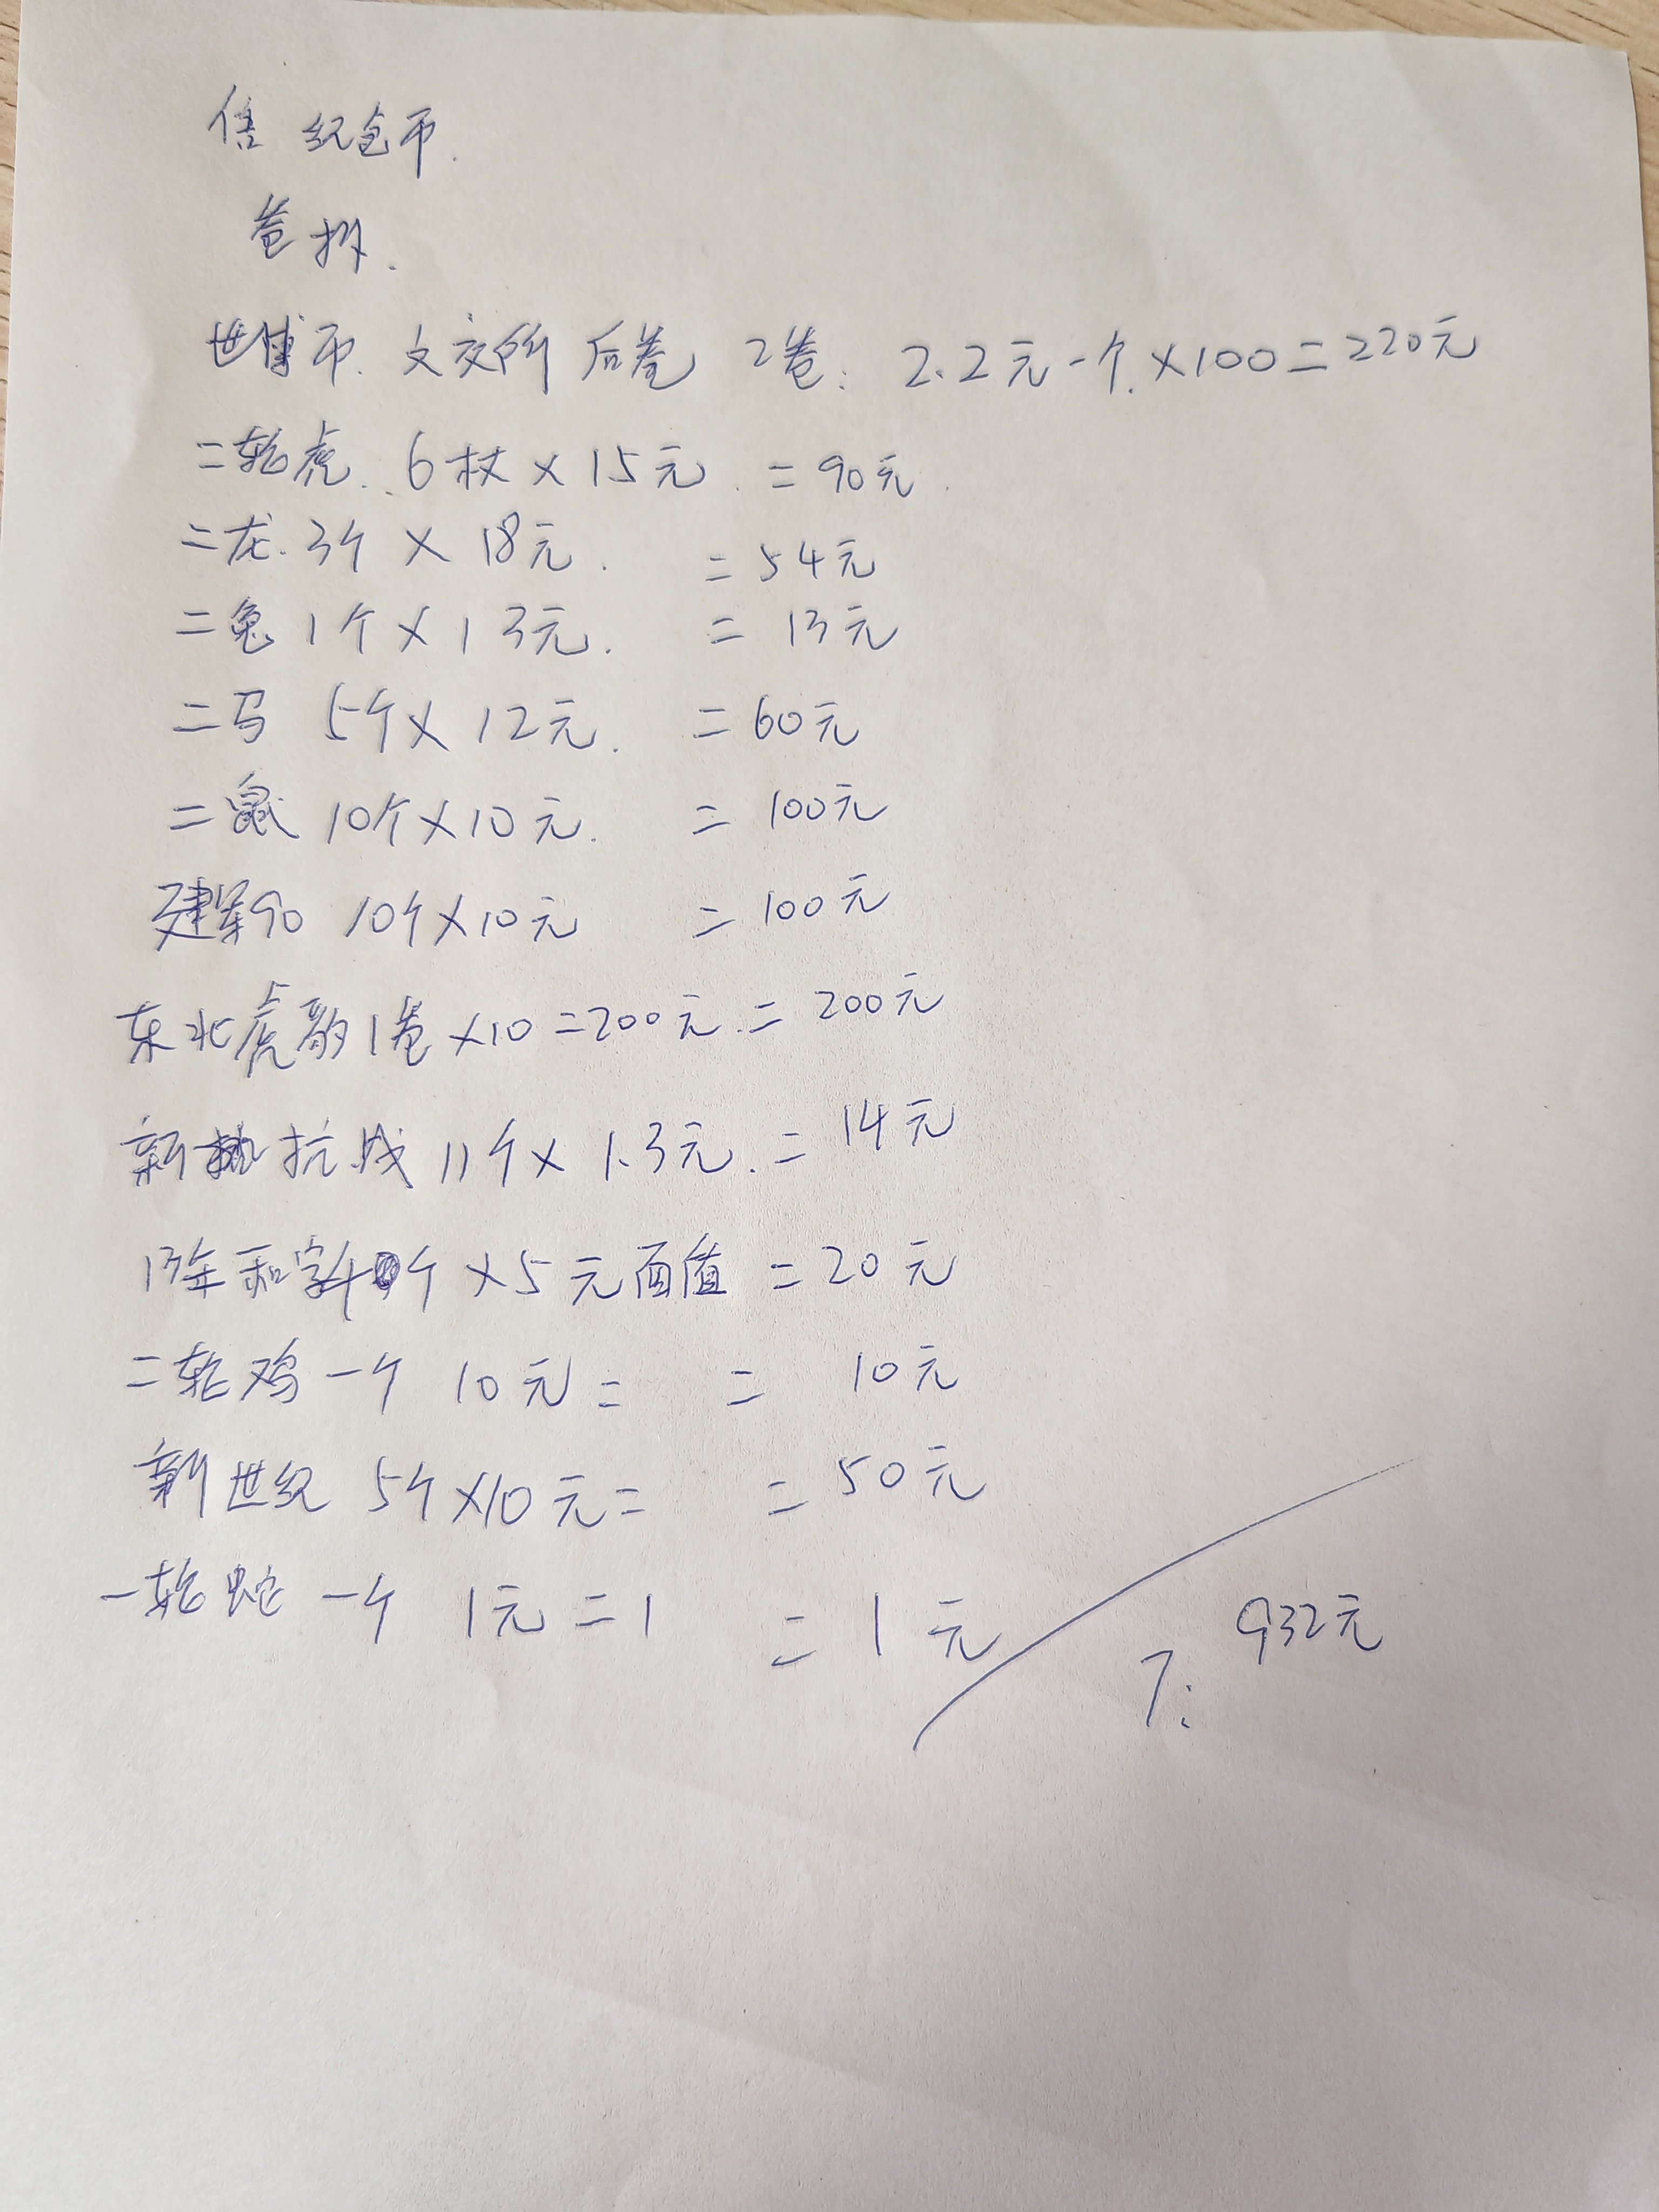 售 纪念币.
卷拆.
世博币. 文交所 后卷 2卷: 2.2元一个.×100=220元
二轮虎.. 6枚×15元. =90元.
二龙. 3个 × 18元. =54元
二兔 1个×13元. =13元
二马 5个×12元. =60元
二鼠 10个×10元. =100元
建军90 10个×10元 =100元
东北虎豹1卷×10=200元.=200元
新 抗战 11个× 1.3元.=14元
13年和字4个×5元面值=20元
二轮鸡一个 10元= = 10元
新世纪 5个×10元= =50元
一轮蛇 一个 1元=1 =1元
932元